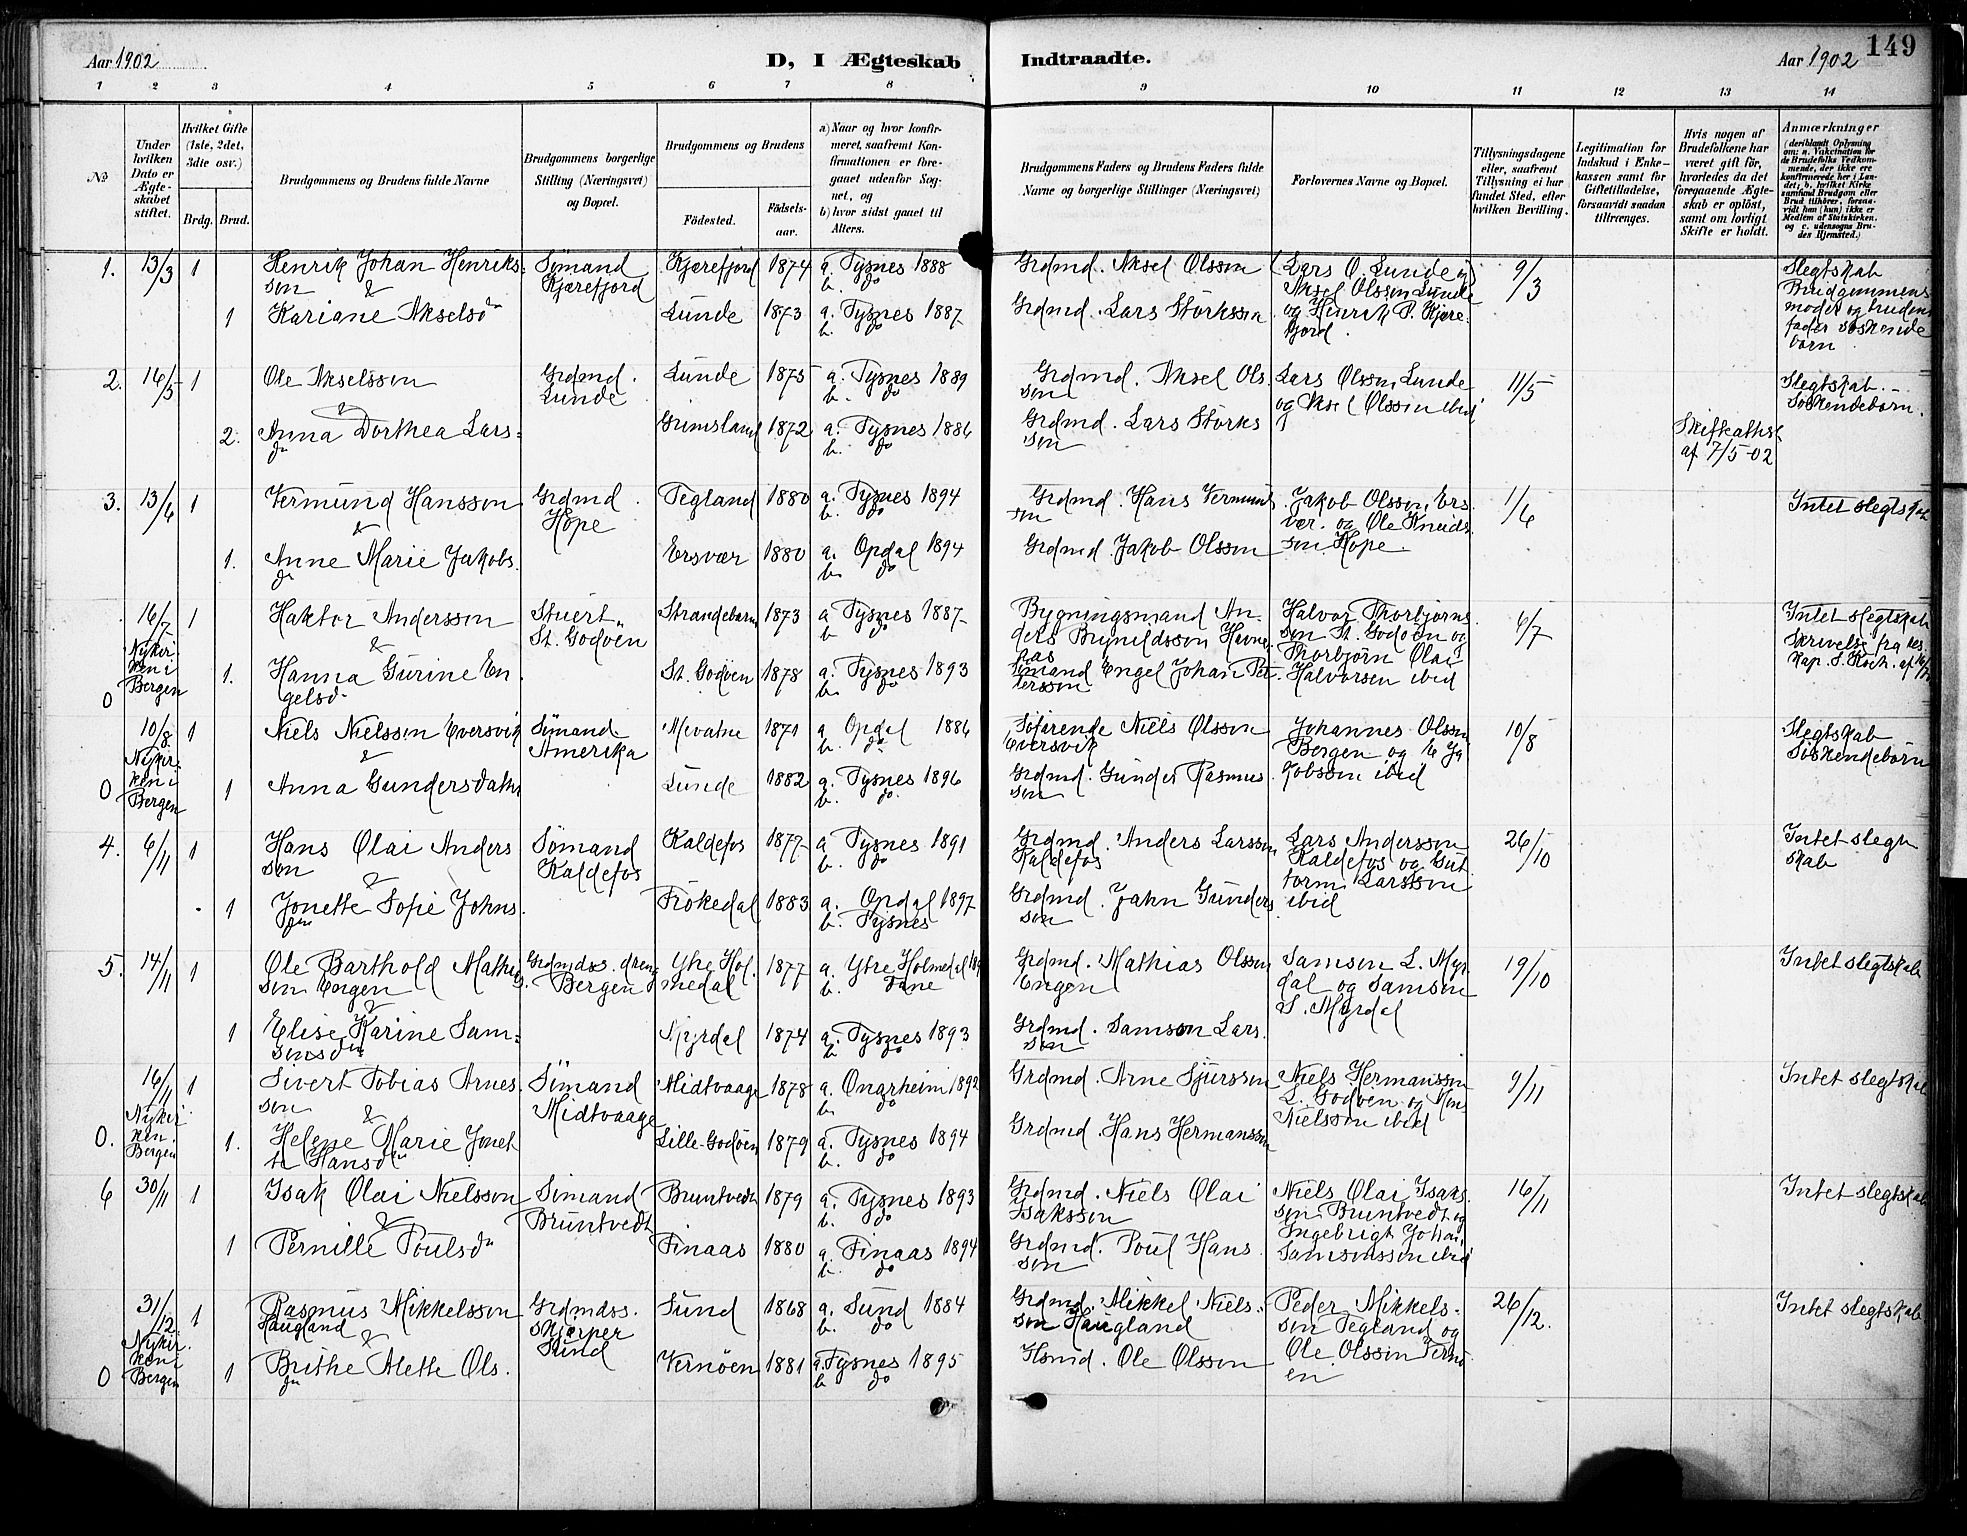 Aar 1902
D, I Ægteskab Indtraadte.
Aar 1902
149
1 2 3 4 5 6 7 8 9 10 11 12 13 14
No
Under hvilken Dato er Ægteskabet stiftet.
Hvilket Gifte (1ste, 2det, 3die osv.)
Brdg. Brud.
Brudgommens og Brudens fulde Navne
Brudgommens borgerlige Stilling (Næringsvei) og Bopæl.
Brudgommens og Brudens
Fødested.
Fødsels-aar.
a) Naar og hvor konfirmeret, saafremt Konfirmationen er foregaaet udenfor Sognet, og
b) hvor sidst gaaet til Alters.
Brudgommens Faders og Brudens Faders fulde Navne og borgerlige Stillinger (Næringsvei)
Forlovernes Navne og Bopæl.
Tillysningsdagene eller, saafremt Tillysning ei har fundet Sted, efter hvilken Bevilling.
Legitimation for Indskud i Enkekassen samt for Giftetilladelse, forsaavidt saadan tiltrænges.
Hvis nogen af Brudefolkene har været gift før, hvorledes da det foregaaende Ægteskab er opløst, samt om lovligt Skifte er holdt.
Anmærkninger (deriblandt Oplysning om: a. Vakcination for de Brudefolks Vedkommende, der ikke ere konfirmerede her i Landet; b. hvilket Kirkesamfund Brudgom eller Brud tilhører, forsaavidt han (hun) ikke er Medlem af Statskirken. og c. udensogns Brudes Hjemsted.)
1. 13/3 1 Henrik Johan Henriksson & Sømand Kjærefjord Kjærefjord 1874 a. Tysnes 1888 b. do Grdmd. Aksel Olsson Lars O. Lunde og Aksel Olsson Lunde og Henrik P. Kjærefjord. 9/3 Slegtskab Brudgommens moder og brudens fader søskendebørn.
1 Kariane Akselsdr Lunde 1873 a. Tysnes 1887 b. do Grdmd. Lars Størksson
2. 16/5 1 Ole Akselsson & Grdmd. Lunde Lunde 1875 a. Tysnes 1889 b. do Grdmd. Aksel Olsson Lars Olsson Lunde og Aksel Olsson ibid 11/5 Slegtskab. Søskendebørn.
2. Anna Dorthea Larsdr Grimsland 1872 a. Tysnes 1886 b. do Grdmd. Lars Størksson Skifteathst af 7/5-02
3. 13/6 1 Vermund Hansson & Grdmd. Hope Tegland 1880 a. Tysnes 1894 b. do Grdmd. Hans Vermundsson Jakob Olsson Ersvær. og Ole Knudsson Hope. 1/6 Intet slegtskab
1. Anne Marie Jakobsdr Ersvær 1880 a. Opdal 1894 b. do Grdmd. Jakob Olsson
0 16/7 Nykirken i Bergen 1 Haktor Andersson & Stuert St. Godøen Strandebarm 1873 a Tysnes 1887 b do Bygningsmand Anders Bryneldsson Halvor Thorbjørnsson St. Godøen og Thorbjørn Olai Halvorsen ibid 6/7 Intet slegtskab Skrivelse fra res. Kap. S. Koch. af
1. Hanna Gurine Engelsdr St. Godøen 1878 a. Tysnes 1893 b. do Sømand Engel Johan Pettersson
0 10/8 Nykirken i Bergen 1 Niels Nielsson Eversvik & Sømand Amerika Mevatne 1871 a Opdal 1886 b. do Søfarende Niels Olsson Eversvik Johannes Olsson Bergen og Jakobsson ibid 10/8 Slegtskab Søskendebørn
1 Anna Gundersdatter Lunde 1882 a. Tysnes 1896 b. do. Grdmd. Gunder Rasmusson
4. 6/11 1 Hans Olai Andersson & Sømand Kaldefos Kaldefos 1877 a Tysnes 1891 b. do Grdmd. Anders Larsson Kaldefos Lars Andersson Kaldefos og Guttorm Larsson ibid 26/10 Intet slegtskab
1 Jonette Sofie Johnsdtr Frøkedal 1883 a. Opdal 1897 b. Tysnes Grdmd. John Gundersson
5. 14/11 1 Ole Barthold Mathiasson Engen & Grdmdss. dreng Bergen Ytre Holmedal 1877 a. Ytre Holmedal b. Grdmd. Mathias Olsson Engen Samson L. Myrdal og Samson S. Myrdal 19/10 Intet slegtskab
1 Elise Karine Samsonsdr Myrdal 1874 a. Tysnes 1893 b do Grdmd. Samson Larsson
0. 16/11 Nykirken. Bergen 1 Sivert Tobias Arnesson & Sømand Midtvaage Midtvaage 1878 a. Onarheim 1892 b. do Grdmd. Arne Sjursson Niels Hermansson L. Godøen og Nielsson ibid 9/11 Intet slegtskab
1. Helene Marie Jonette Hansdtr Lille-Godøen 1879 a. Tysnes 1894 b. do Grdmd. Hans Hermansson
6 30/11 1 Isak Olai Nielsson & Sømand Bruntvedt Bruntvedt 1879 a. Tysnes 1893 b. do Grdmd. Niels Olai Isaksson Niels Olai Isaksson Bruntvedt og Ingebrigt Johan Samsonsson ibid 16/11 Intet slegtskab
1 Pernille Poulsdr Finaas 1880 a. Finaas 1894 b. do Grdmd. Poul Hansson
0 31/12. Nykirken i Bergen 1 Rasmus Mikkelsson Haugland & Grdmdss. Skjærper Sund Sund 1868 a. Sund 1884 b. do Grdmd. Mikkel Nielsson Haugland Peder Mikkelsson Tegland og Ole Olsson Vernøen 26/12. Intet slegtskab
1 Brithe Alette Olsdr Vernøen 1881 a. Tysnes 1895 b do Hsmd. Ole Olsson